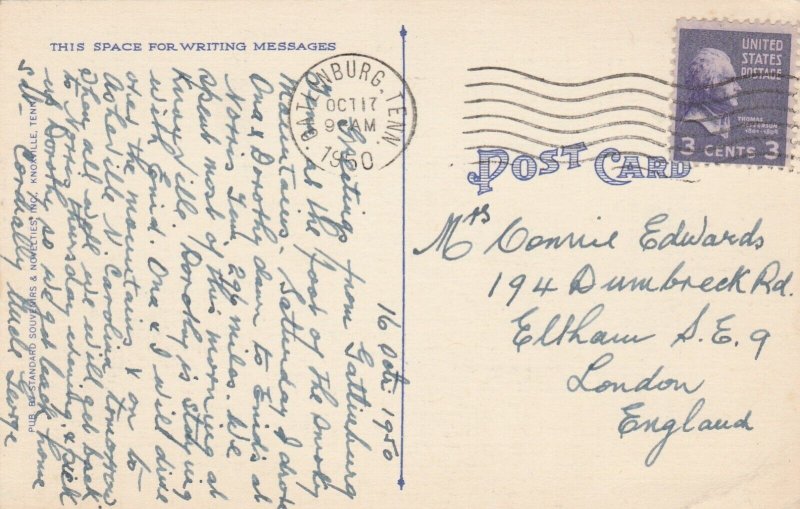 THIS SPACE FOR WRITING MESSAGES
16 Oct. 1950
Greetings from Gatlinburg
Tenn at the foot of the Smoky
Mountains. Satturday I drove
Ona & Dorothy down to Enid's at
Norris Tenn 296 miles. We
spent most of this morning at
Knoxville. Dorothy is staying
with Enid. Ona & I will drive
over the mountains & on to
Asheville N. Carolina tomorrow
when all well we will get back
to Norris Thursday evening & pick
up Dorothy so we get back home
Cordially Uncle George
PUB. BY STANDARD SOUVENIRS & NOVELTIES, INC. KNOXVILLE, TENN.
GATLINBURG, TENN.
OCT 17
9 AM
1950
UNITED
STATES
POSTAGE
THOMAS
JEFFERSON
1801-1809
3 CENTS 3
POST CARD
Mrs Connie Edwards
194 Dumbreck Rd.
Eltham S.E.9
London
England